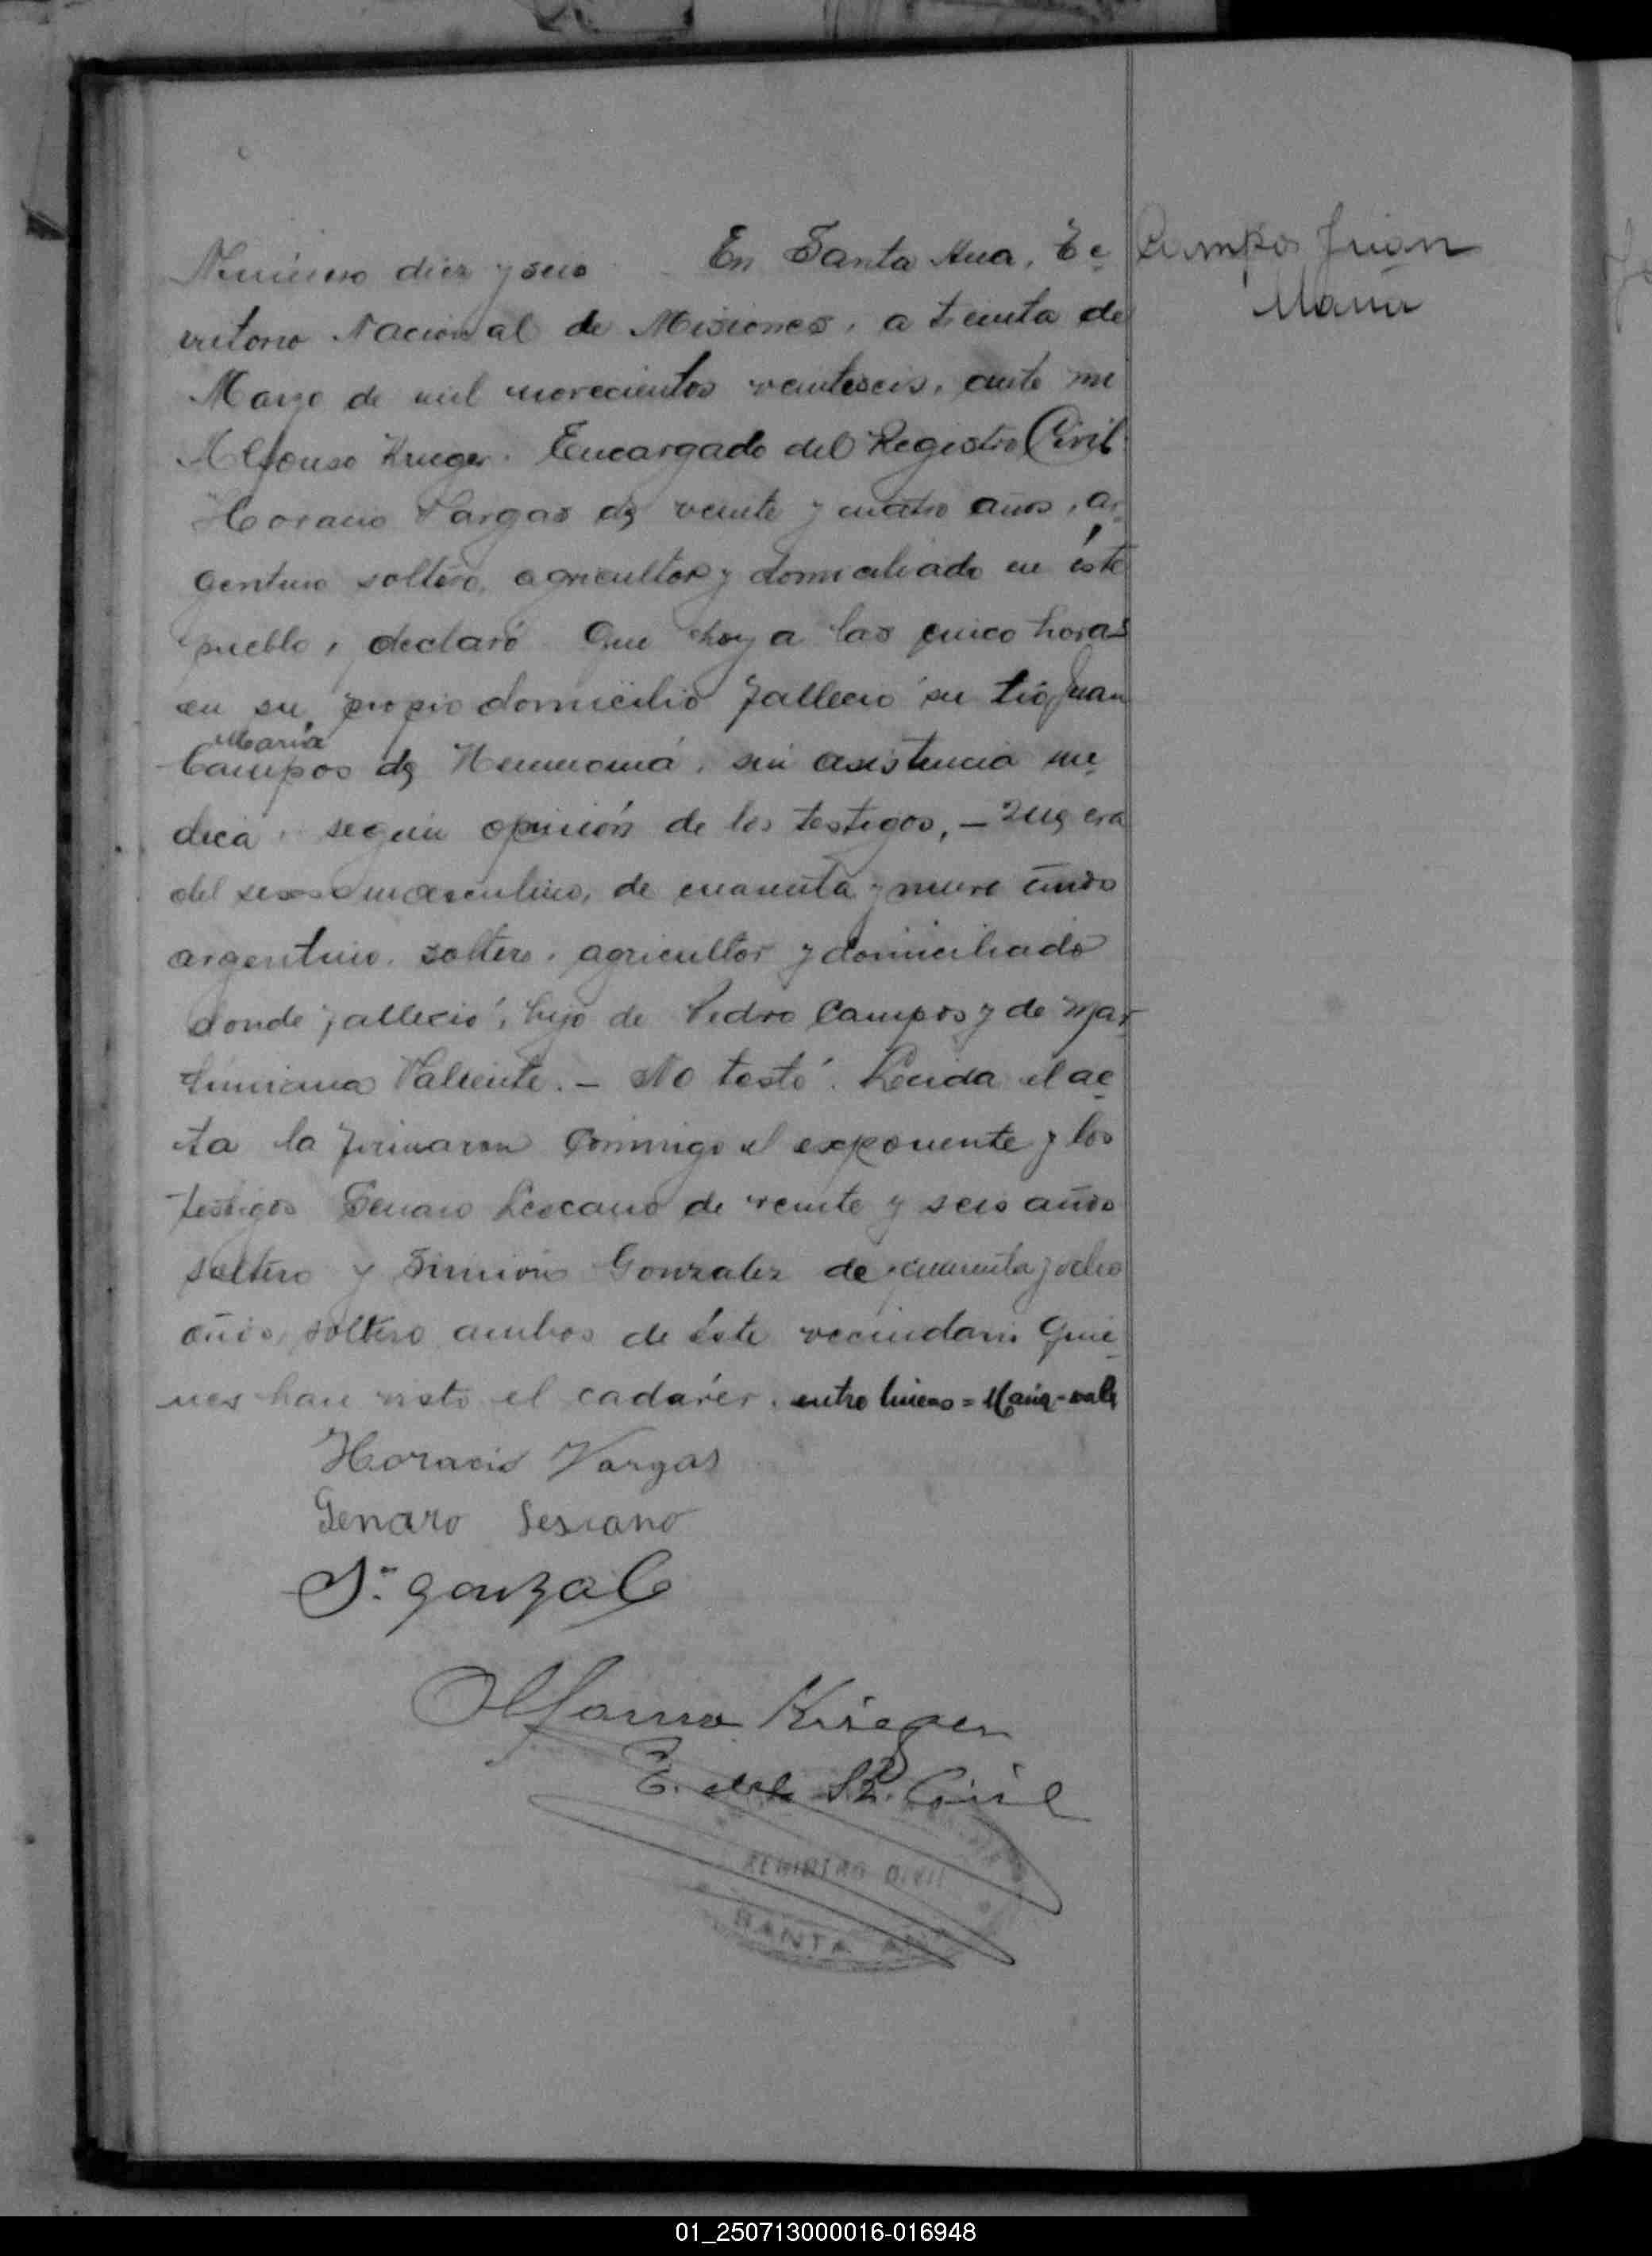 Campos Juan
Maria
Número diez y seis En Santa Ana, Te
rritorio Nacional de Misiones, a treinta de
Marzo de mil novecientos veinteseis, ante mi
Alfonso Krieger. Encargado del Registro Civil.
Horacio Vargas de veinte y cuatro años, ar
gentino soltero, agricultor y domiciliado en éste
pueblo, declaró Que hoy a las cinco horas
en su propio domicilio falleció su tio Juan
María
Campos de Neumonía, sin asistencia me
dica, según opinión de los testigos, – Que era
del sexo masculino, de cuarenta y nueve años
argentino, soltero, agricultor y domiciliado
donde falleció, hijo de Pedro Campos y de
Valiente. – No testó. Leida el ac
ta la firmaron conmigo el exponente y los
testigos Genaro Lescano de veinte y seis años
soltero y Simeón Gonzalez de y ocho
años, soltero ambos de éste vecindario Quie
nes han visto el cadáver. entre lineas = María - vale
Horacio Vargas
Genaro Lescano
S. Gonzalez
Alfonso Krieger
E. del R. Civil
REGISTRO CIVIL
SANTA ANA
01_250713000016-016948